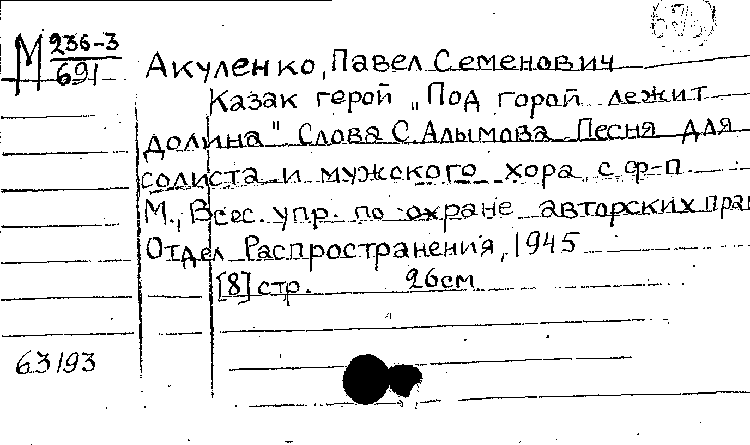 М 236-3
691
Акуленко, Павел Семенович
Казак герой „Под горой лежит
долина" Слова С. Алымова Песня для
солиста и мужского хора с ф-п.
М., Всес. упр. по охране авторских прав
Отдел Распространения, 1945
[8] стр. 26см
63193